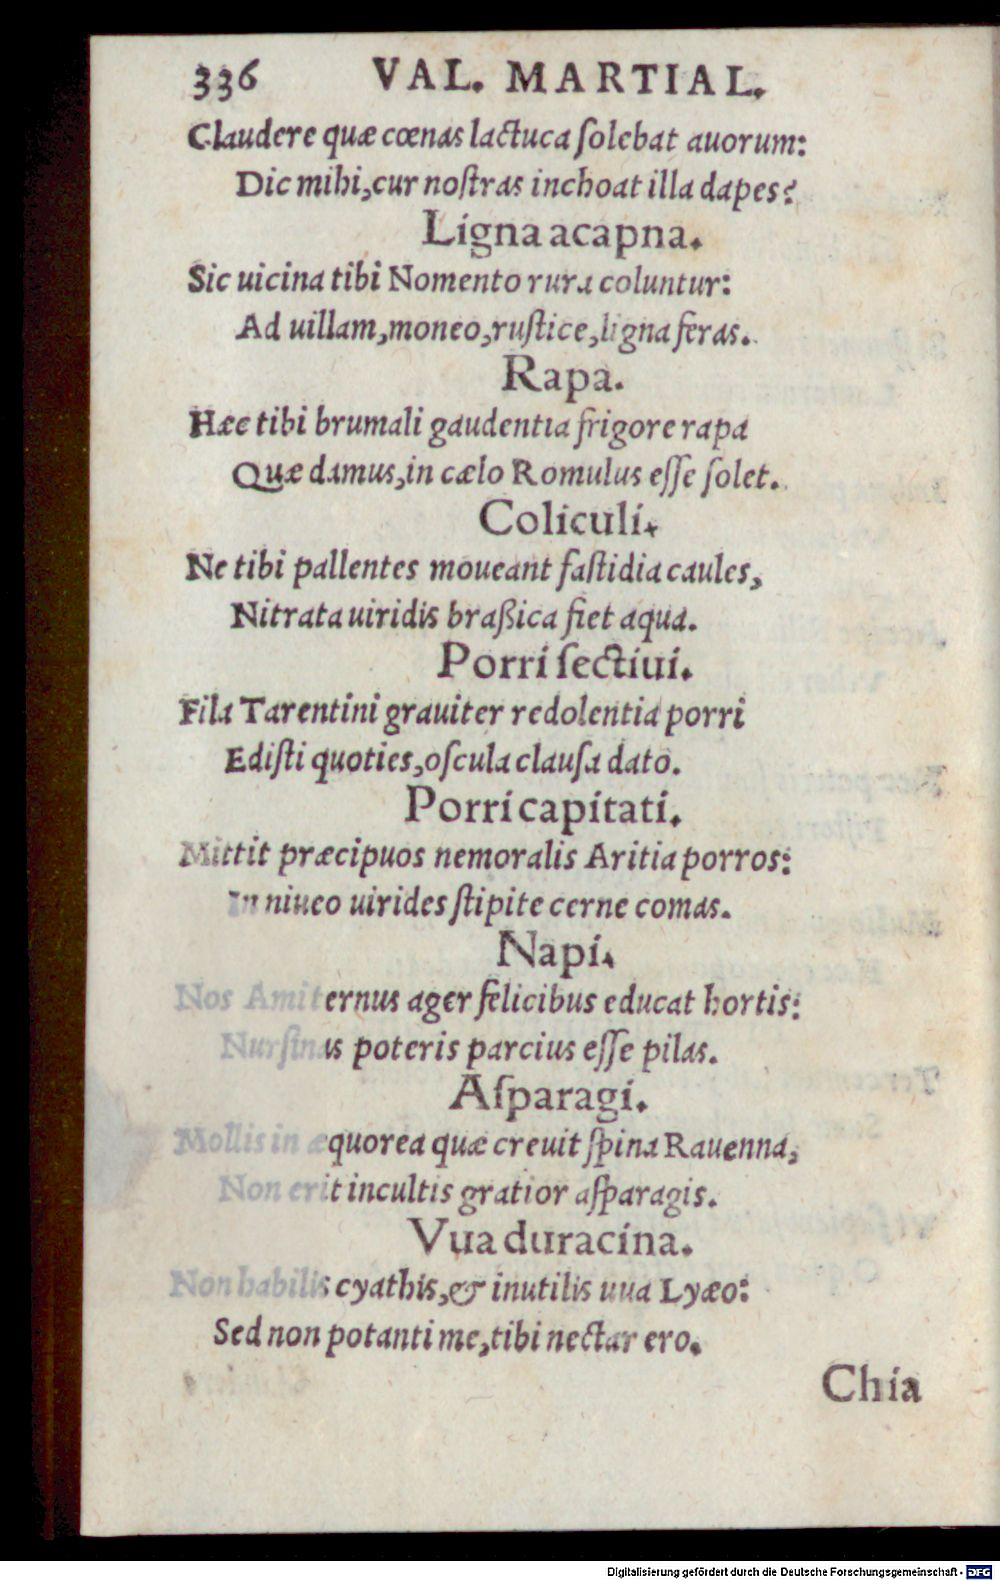 336 VAL. MARTIAL.
Claudere quæ cœnas lactuca ſolebat auorum:
Dic mihi, cur noſtras inchoat illa dapes?
Ligna acapna.
Sic uicina tibi Nomento rura coluntur:
Ad uillam, moneo, ruſtice, ligna feras.
Rapa.
Hæc tibi brumali gaudentia frigore rapa
Quæ damus, in cælo Romulus eſſe ſolet.
Coliculi.
Ne tibi pallentes moueant faſtidia caules,
Nitrata uiridis braßica fiet aqua.
Porri ſectiui.
Fila Tarentini grauiter redolentia porri
Ediſti quoties, oſcula clauſa dato.
Porri capitati.
Mittit præcipuos nemoralis Aritia porros:
In niueo uirides ſtipite cerne comas.
Napi.
Nos Amiternus ager felicibus educat hortis:
Nurſinas poteris parcius eſſe pilas.
Aſparagi.
Mollis in æquorea quæ creuit ſpina Rauenna,
Non erit incultis gratior aſparagis.
Vua duracina.
Non habilis cyathis, & inutilis uua Lyæo:
Sed non potanti me, tibi nectar ero.
Chia
Digitalisierung gefördert durch die Deutsche Forschungsgemeinschaft - DFG